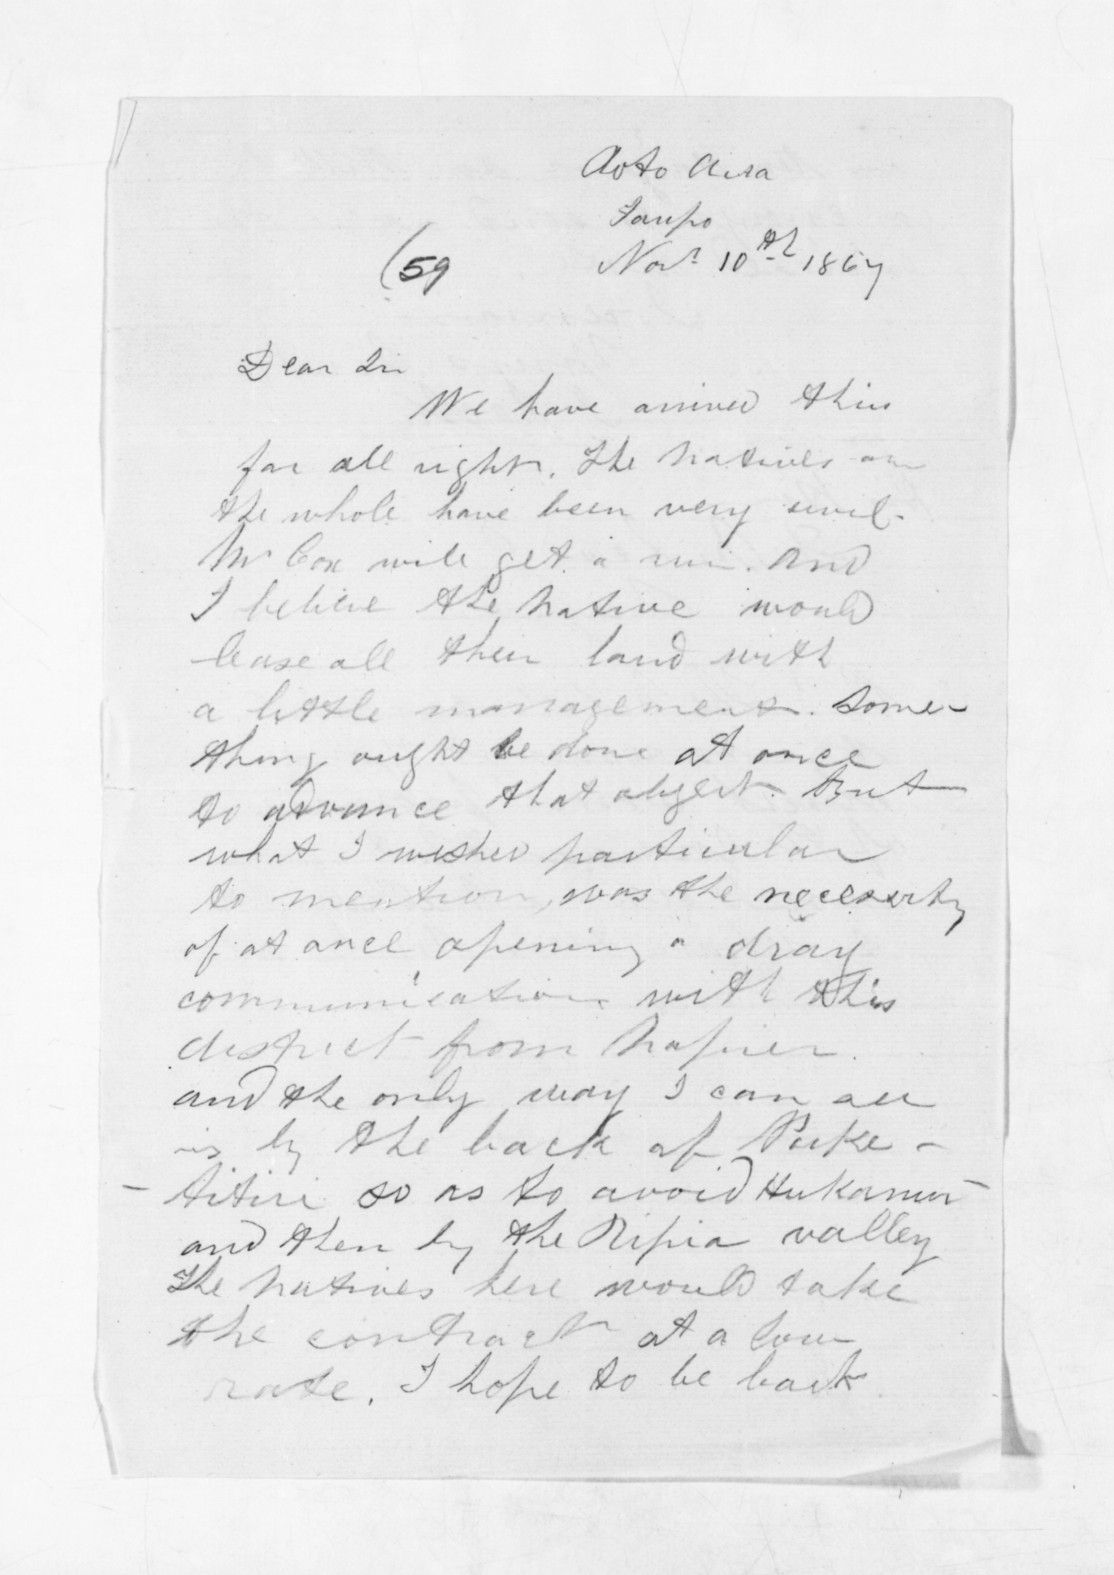 Roto Aira
Taupo
Novr 10th 1867
(59
Dear Sir
We have arrived thus
far all right. The Natives on
the whole have been very sivil.
Mr Cox will get a run. And
I believe the Native would
lease all their land with
a little management. Some-
thing ought be done at once
to advance that object. But
what I wished particular
to mention, was the necessity
of at once opening a dray
communication with this
district from Napier.
and the only way I can see
is by the back of Puke-
-titiri so as to avoid
and then by the Ripia valley
The Natives here would take
the contract at a low
rate. I hope to be back